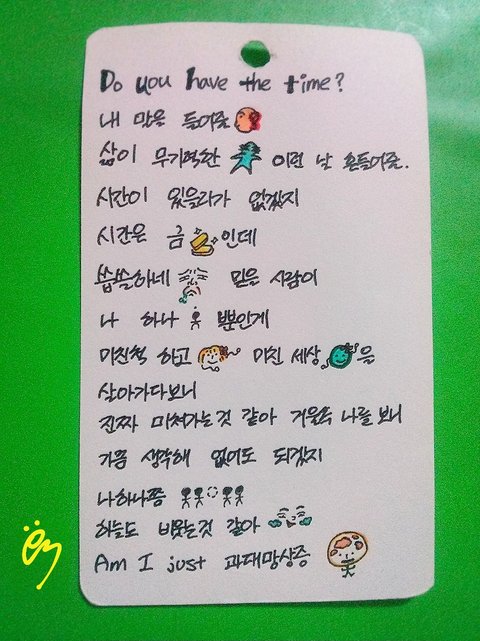 Do you have the time?
내 말을 들어줘
삶이 무기력한 이런 날 흔들어줘.
시간이 있을라가 없겠지
시간은 금인데
씁쓸하네 믿은 사람이
나 하나 뿐인게
미친척 하고 미친 세상을
살아가다보니
진짜 미쳐가는것 같아 거울속 나를 보니
가끔 생각해 없어도 되겠지
나하나쯤
하늘도 비웃는것 같아
Am I just 과대망상증
em